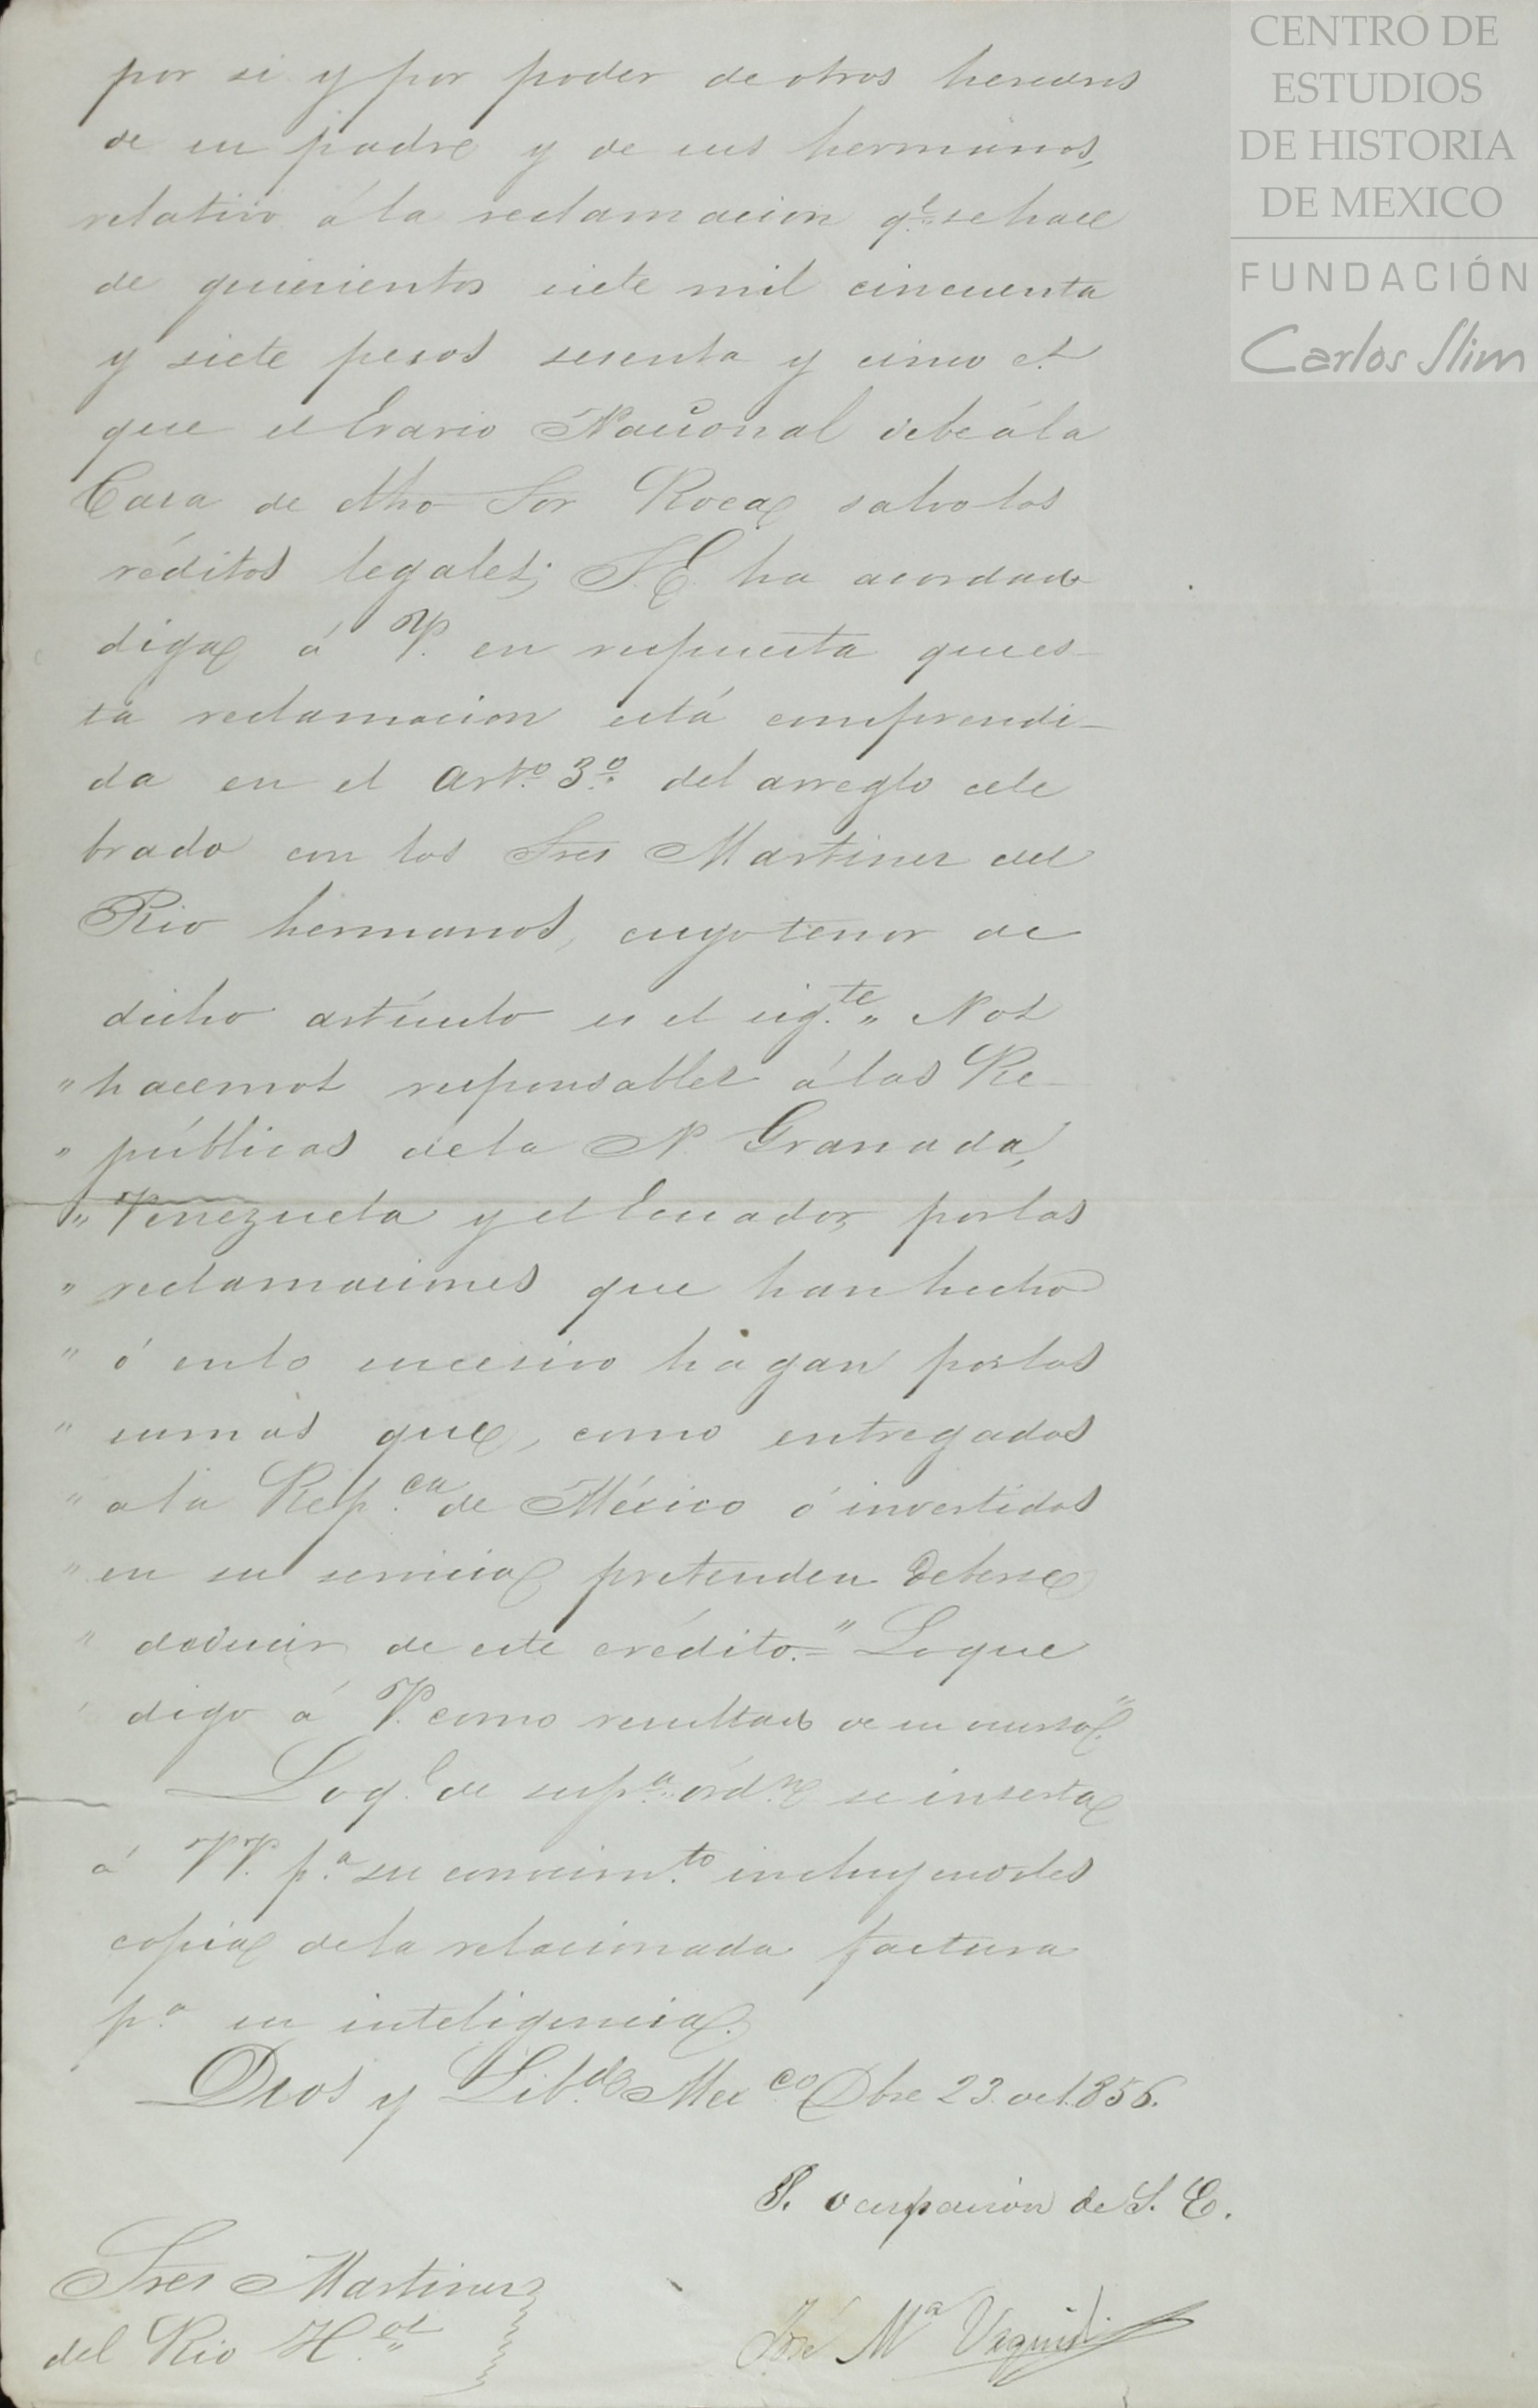 CENTRO DE
ESTUDIOS
DE HISTORIA
DE MEXICO
FUNDACIÓN
Carlos Slim
por si y por poder de otros herederos
de su padre y de sus hermanos,
relativo á la reclamacion q.e se hace
de quinientos siete mil cincuenta
y siete pesos sesenta y cinco c.s
que el Erario Nacional debe á la
Casa de dho Sor Roca salvo los
réditos legales; S. E. ha acordado
diga á V. en respuesta que es-
ta reclamacion está comprendi-
da en el art.o 3.o del arreglo cele
brado con los Sres Martinez del
Rio hermanos, cuyo tenor de
dicho artículo es el sig.te „ Nos
„ hacemos responsables á las Re-
„ públicas de la N. Granada,
„ Venezuela y el Ecuador, por las
„ reclamaciones que han hecho
„ ó en lo sucesivo hagan por las
„ sumas que, como entregadas
„ a la Rep.ca de México ó invertidas
„ en su servicio pretenden deberse
„ deducir de este crédito.=" Lo que
digo á V. como resultado de su curso."
Lo q.e de sup.a órd.n se inserta
á VV. p.a su conocim.to incluyendoles
copia de la relacionada factura
p.a su inteligencia.
Dios y Lib.d Mex.co Dbre 23. de 1.856.
P. ocupacion de S. E.
José M.a Urquidi
Sres Martinez
del Rio H.os